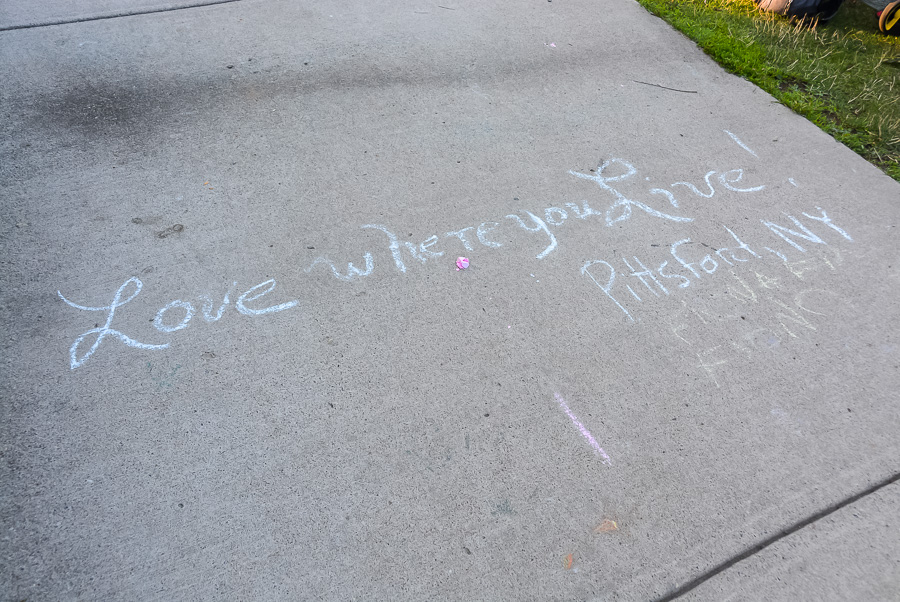 Love where you Live!
Pittsford, NY